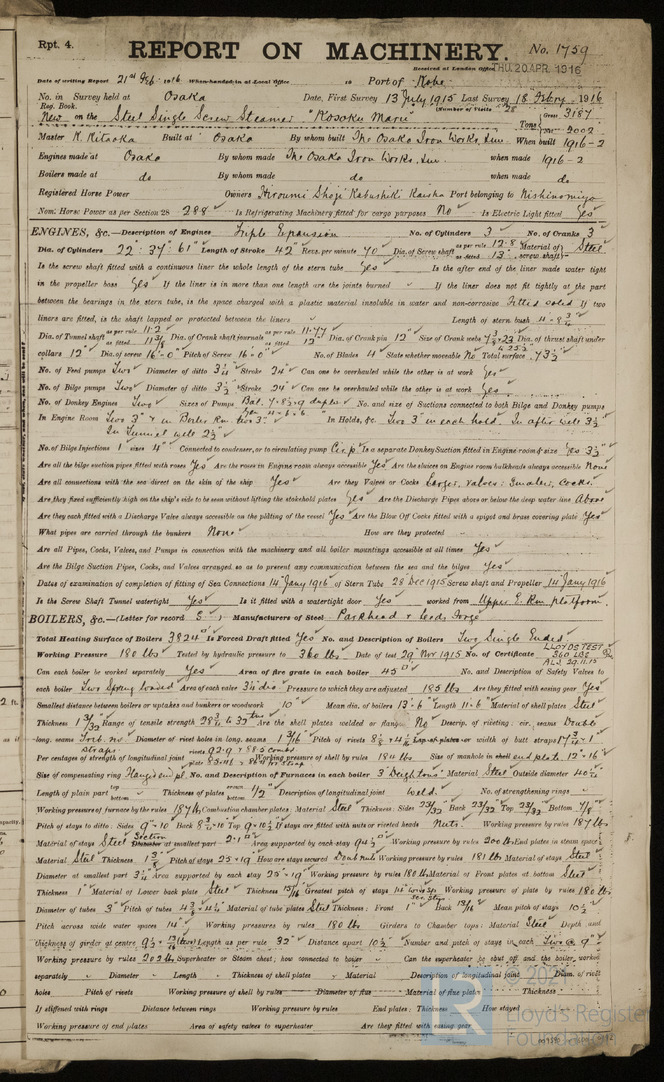 Rpt. 4.
REPORT ON MACHINERY. No. 1759
Received at London Office THU. 20 APR. 1916
Date of writing Report 21st Feb. 1916 When handed in at Local Office 10 Port of Kobe
No. in Survey held at Osaka Date, First Survey 13 July 1915 Last Survey 18 Febry. 1916
Reg. Book. (Number of Visits 28
New on the Steel Single Screw Steamer "Kosoku Maru" Tons Gross 3187 Net 2002
Master K. Kitaoka Built at Osaka By whom built The Osaka Iron Works, Lim. When built 1916-2
Engines made at Osaka By whom made The Osaka Iron Works, Lim. when made 1916-2
Boilers made at do By whom made do when made do
Registered Horse Power Owners Hiroumi Shoji Kabushiki Kaisha Port belonging to Nishinomiya
Nom. Horse Power as per Section 28 288 Is Refrigerating Machinery fitted for cargo purposes No Is Electric Light fitted Yes
ENGINES, &c.—Description of Engines Triple Expansion No. of Cylinders 3 No. of Cranks 3
Dia. of Cylinders 22" 37" 61" Length of Stroke 42" Revs. per minute 70 Dia. of Screw shaft as per rule 12.8 as fitted 13" Material of screw shaft Steel
Is the screw shaft fitted with a continuous liner the whole length of the stern tube Yes Is the after end of the liner made water tight
in the propeller boss Yes If the liner is in more than one length are the joints burned If the liner does not fit tightly at the part
between the bearings in the stern tube, is the space charged with a plastic material insoluble in water and non-corrosive Fitted solid If two
liners are fitted, is the shaft lapped or protected between the liners Length of stern bush
Dia. of Tunnel shaft as per rule 11.2 as fitted 11 3/8 Dia. of Crank shaft journals as per rule 11.77 as fitted 12" Dia. of Crank pin 12" Size of Crank webs Dia. of thrust shaft under
collars 12" Dia. of screw 16'-0" Pitch of Screw 16-0 No. of Blades 4 State whether moveable No Total surface 73 1/2
No. of Feed pumps Two Diameter of ditto 3 1/4 Stroke 24" Can one be overhauled while the other is at work Yes
No. of Bilge pumps Two Diameter of ditto 3 1/2 Stroke 24" Can one be overhauled while the other is at work Yes
No. of Donkey Engines Two Sizes of Pumps No. and size of Suctions connected to both Bilge and Donkey pumps
In Engine Room Two 3" & in Boiler Rm. two 3" In Holds, &c. Two 3" in each hold. In after well 3 1/2
In Tunnel well 2 1/2
No. of Bilge Injections 1 sizes 4" Connected to condenser, or to circulating pump Cir. p. Is a separate Donkey Suction fitted in Engine room & size Yes 3 1/2
Are all the bilge suction pipes fitted with roses Yes Are the roses in Engine room always accessible Yes Are the sluices on Engine room bulkheads always accessible None
Are all connections with the sea direct on the skin of the ship Yes Are they Valves or Cocks Large, Valves: Smaller, Cocks.
Are they fixed sufficiently high on the ship's side to be seen without lifting the stokehold plates Yes Are the Discharge Pipes above or below the deep water line Above
Are they each fitted with a Discharge Valve always accessible on the plating of the vessel Yes Are the Blow Off Cocks fitted with a spigot and brass covering plate Yes
What pipes are carried through the bunkers None How are they protected
Are all Pipes, Cocks, Valves, and Pumps in connection with the machinery and all boiler mountings accessible at all times Yes
Are the Bilge Suction Pipes, Cocks, and Valves arranged so as to prevent any communication between the sea and the bilges Yes
Dates of examination of completion of fitting of Sea Connections 14 Jany 1916 of Stern Tube 28 Dec 1915 Screw shaft and Propeller 14 Jany 1916
Is the Screw Shaft Tunnel watertight Yes Is it fitted with a watertight door Yes worked from Upper E. Rm. platform.
BOILERS, &c.—(Letter for record S) Manufacturers of Steel Parkhead & Leeds Forge
Total Heating Surface of Boilers 3824 Is Forced Draft fitted Yes No. and Description of Boilers Two Single Ended
Working Pressure 180 lbs Tested by hydraulic pressure to 360 lbs Date of test 29 Nov 1915 No. of Certificate LLOYDS TEST 360 LBS
Can each boiler be worked separately Yes Area of fire grate in each boiler 45 No. and Description of Safety Valves to
each boiler Two Spring loaded Area of each valve Pressure to which they are adjusted 185 lbs Are they fitted with easing gear Yes
Smallest distance between boilers or uptakes and bunkers or woodwork 10" Mean dia. of boilers 13'-6" Length 11-6" Material of shell plates Steel
Thickness 1 3/32 Range of tensile strength Are the shell plates welded or flanged No Descrip. of riveting: cir. seams Double
long. seams Treb. Diameter of rivet holes in long. seams 1 3/16 Pitch of rivets Lap of plates or width of butt straps
Per centages of strength of longitudinal joint Working pressure of shell by rules 184 lbs Size of manhole in shell end plate 12" x 16"
Size of compensating ring Flanged end pl. No. and Description of Furnaces in each boiler 3 Deightons Material Steel Outside diameter
Length of plain part top bottom Thickness of plates crown bottom 1/2 Description of longitudinal joint weld. No. of strengthening rings
Working pressure of furnace by the rules 187 lbs Combustion chamber plates: Material Steel Thickness: Sides 23/32 Back 23/32 Top 23/32 Bottom 7/8
Pitch of stays to ditto: Sides Back Top If stays are fitted with nuts or riveted heads Nuts. Working pressure by rules 187 lb
Material of stays Steel Section Diameter at smallest part Area supported by each stay Working pressure by rules 200 lbs End plates in steam space
Material Steel Thickness Pitch of stays 25 x 19 How are stays secured Doub nuts Working pressure by rules 181 lbs Material of stays Steel
Diameter at smallest part Area supported by each stay 25 x 19 Working pressure by rules 180 lbs Material of Front plates at bottom Steel
Thickness 1" Material of Lower back plate Steel Thickness 15/16 Greatest pitch of stays Working pressure of plate by rules 180 lbs
Diameter of tubes 3" Pitch of tubes Material of tube plates Steel Thickness: Front 1" Back 13/16 Mean pitch of stays 10 1/2
Pitch across wide water spaces 14" Working pressures by rules 180 lbs Girders to Chamber tops: Material Steel Depth and
thickness of girder at centre Length as per rule 32" Distance apart 10 1/2 Number and pitch of stays in each Two @ 9"
Working pressure by rules 202 lb Superheater or Steam chest; how connected to boiler Can the superheater be shut off and the boiler worked
separately Diameter Length Thickness of shell plates Material Description of longitudinal joint Diam. of rivet
holes Pitch of rivets Working pressure of shell by rules Diameter of flue Material of flue plates Thickness
If stiffened with rings Distance between rings Working pressure by rules End plates: Thickness How stayed
Working pressure of end plates Area of safety valves to superheater Are they fitted with easing gear
© 2021
Lloyd's Register
Foundation